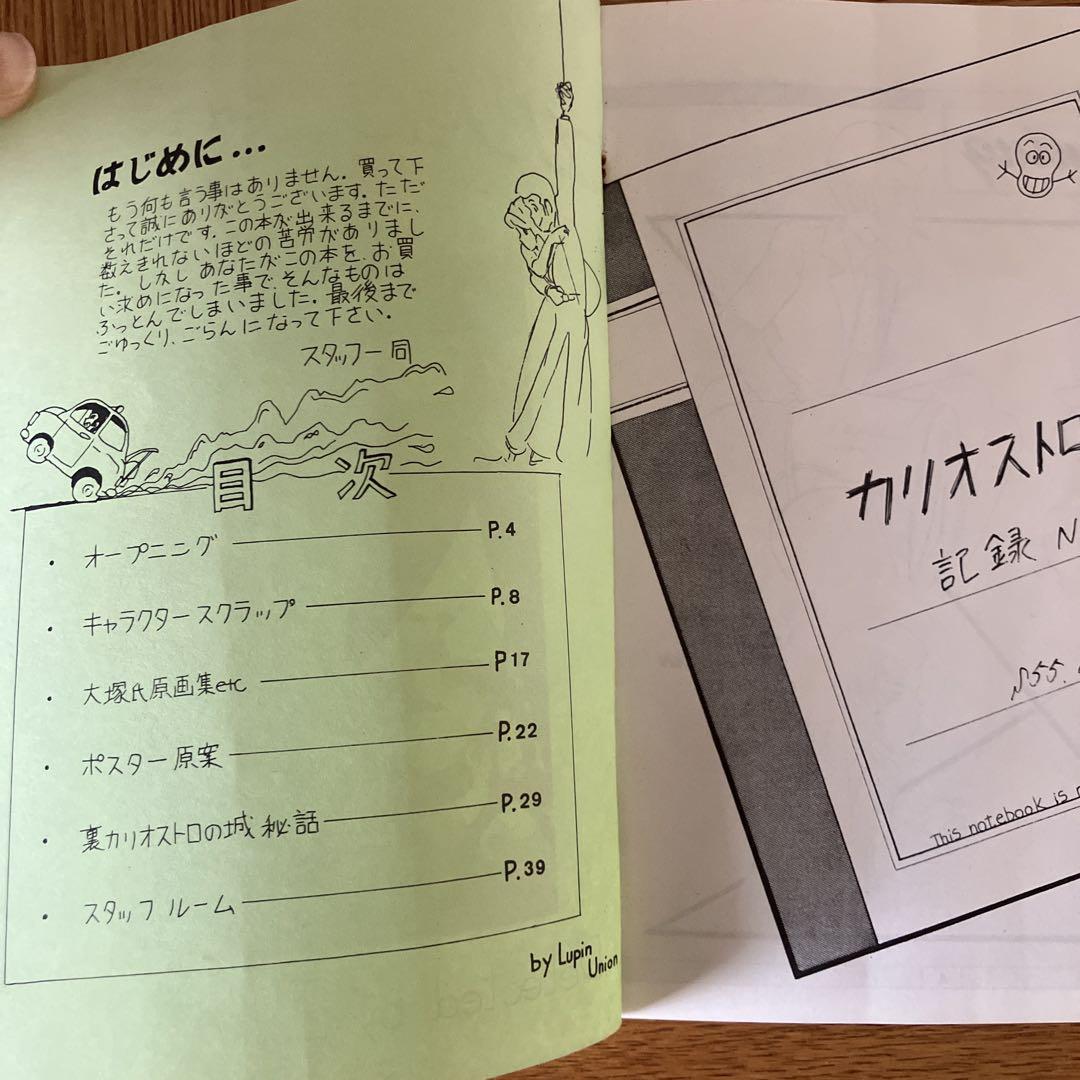 はじめに…
もう何も言う事はありません。買って下
さって誠にありがとうございます。ただ
それだけです。この本が出来るまでに、
数えきれないほどの苦労がありまし
た。しかし あなたがこの本を、お買
い求めになった事で、そんなものは
ふっとんでしまいました。最後まで
ごゆっくり、ごらんになって下さい。
スタッフ一同
目次
・オープニング P.4
・キャラクタースクラップ P.8
・大塚氏原画集etc P17
・ポスター原案 P.22
・裏カリオストロの城 秘話 P.29
・スタッフ ルーム P.39
by Lupin
Union
カリオストロ
記録 N
S55.
This notebook is